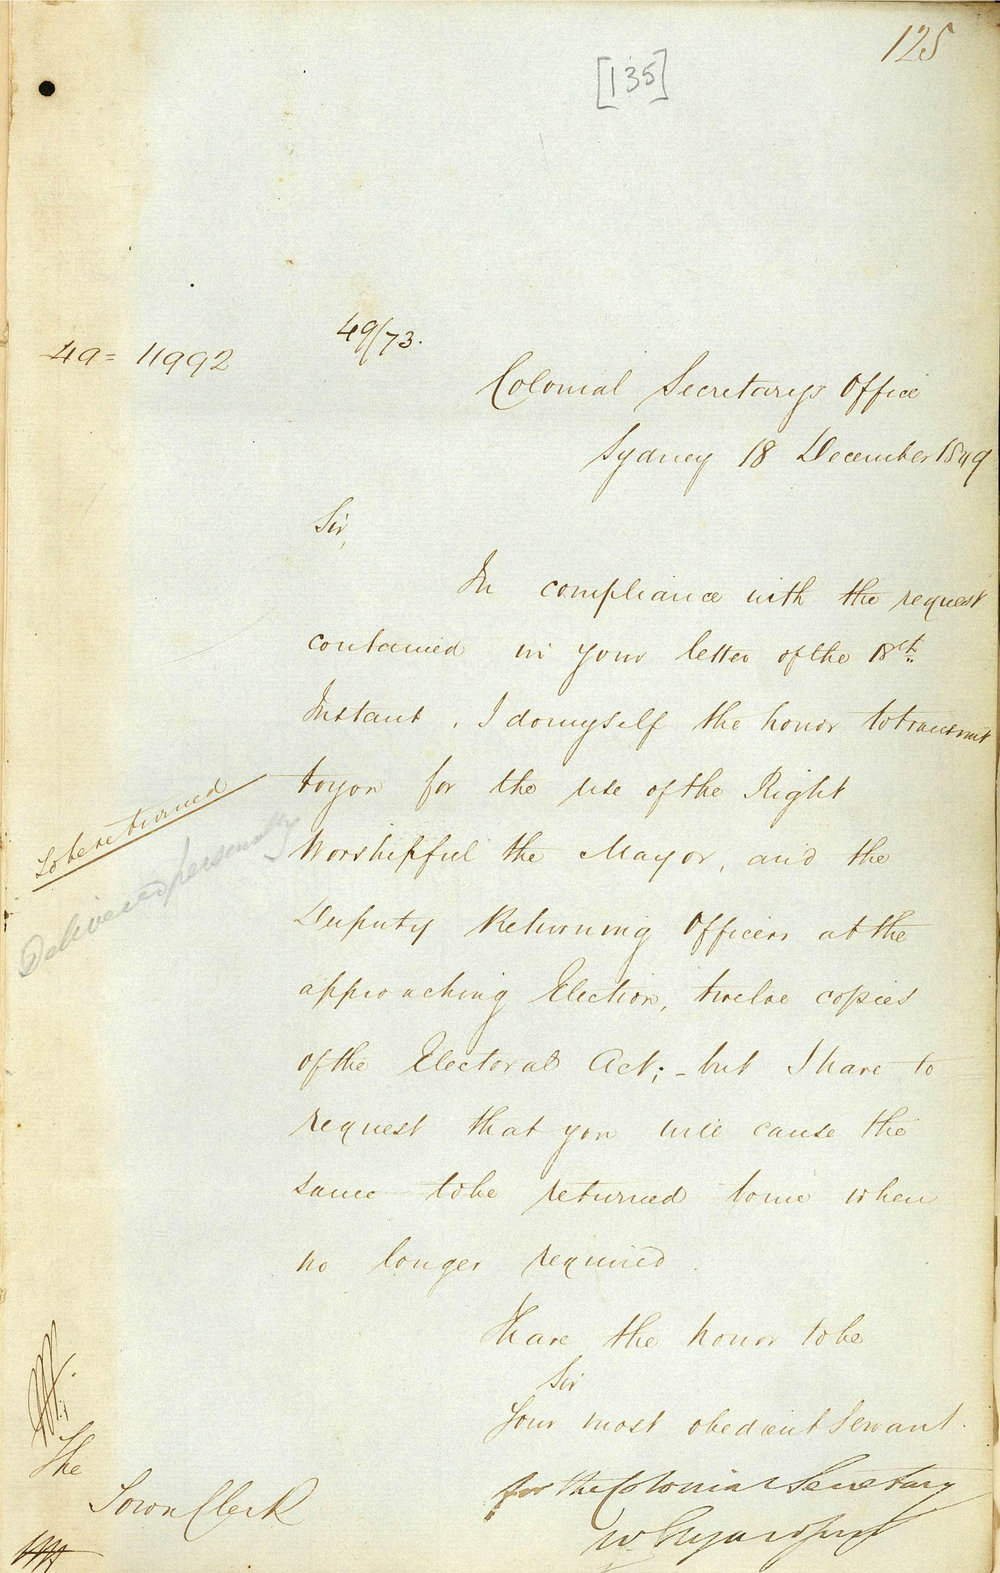 125
[135]
49/73.
49= 11992
Colonial Secretarys Office
Sydney 18 December 1849
Sir,
In compliance with the request
contained in your letter of the 18th
Instant, I do myself the honor to transmit
to you for the use of the Right
Worshipful the Mayor, and the
Deputy Returning Officers at the
approaching Election, twelve copies
of the Electoral Act; - but I have to
request that you will cause the
same to be returned to me when
no longer required.
To be returned
Delivered personally
I have the honor to be
Sir
Your most obedient Servant.
for the Colonial Secretary
W
The
Town Clerk